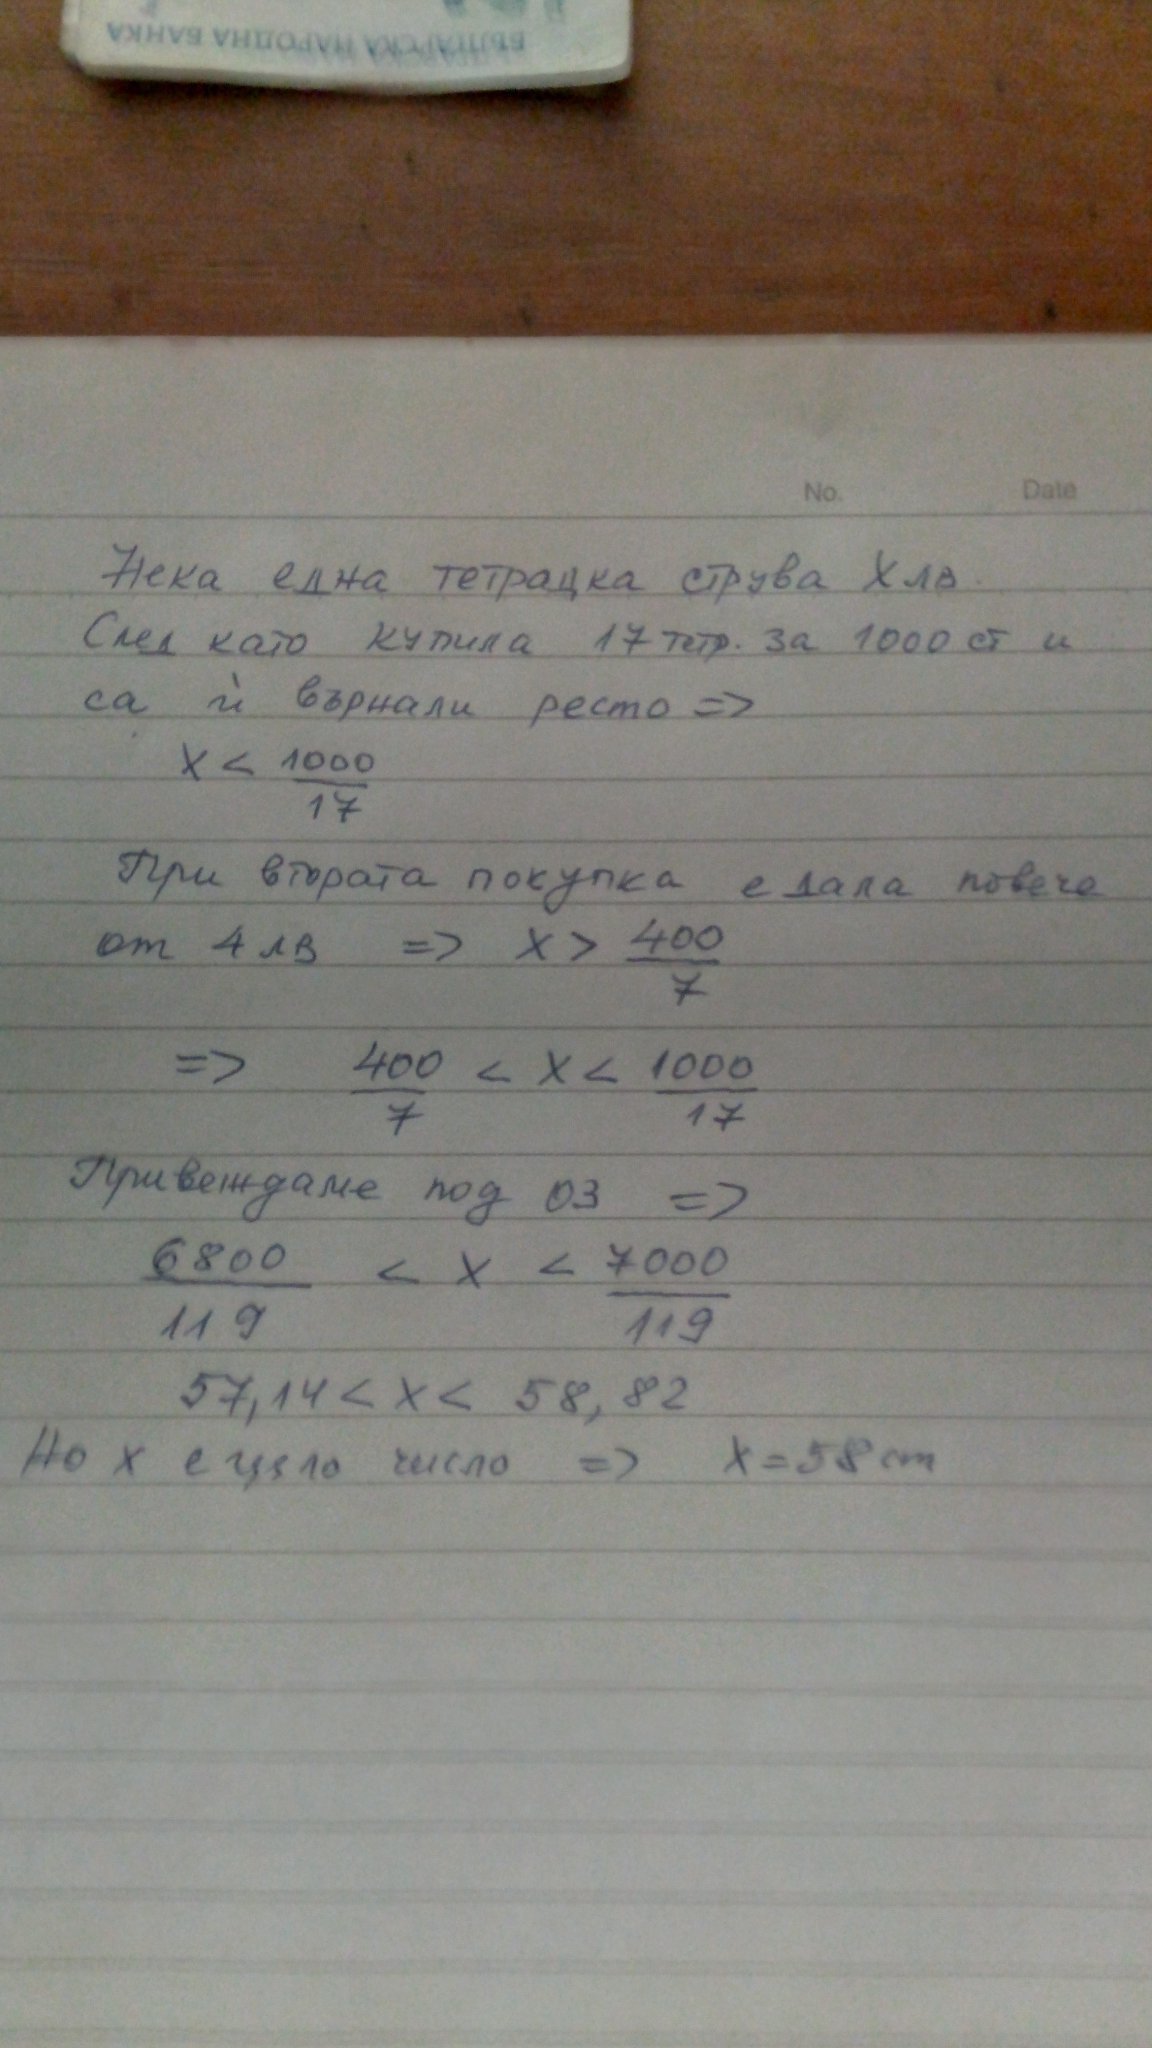 БЪЛГАРСКА НАРОДНА БАНКА
No. Date
Нека една тетрадка струва X лв.
След като купила 17 тетр. за 1000 ст и
са ѝ върнали ресто =>
X < 1000/17
При втората покупка е дала повече
от 4 лв => X > 400/7
=> 400/7 < X < 1000/17
Привеждаме под ОЗ =>
6800/119 < X < 7000/119
57,14 < X < 58,82
Но X е цяло число => X = 58 ст